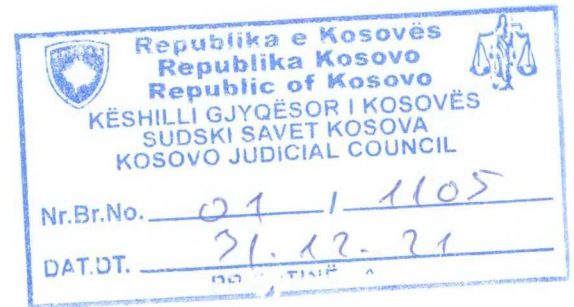 Republika e Kosovës
Republika Kosovo
Republic of Kosovo
KËSHILLI GJYQËSOR I KOSOVËS
SUDSKI SAVET KOSOVA
KOSOVO JUDICIAL COUNCIL
Nr.Br.No. 01 / 1105
DAT.DT. 31.12.21